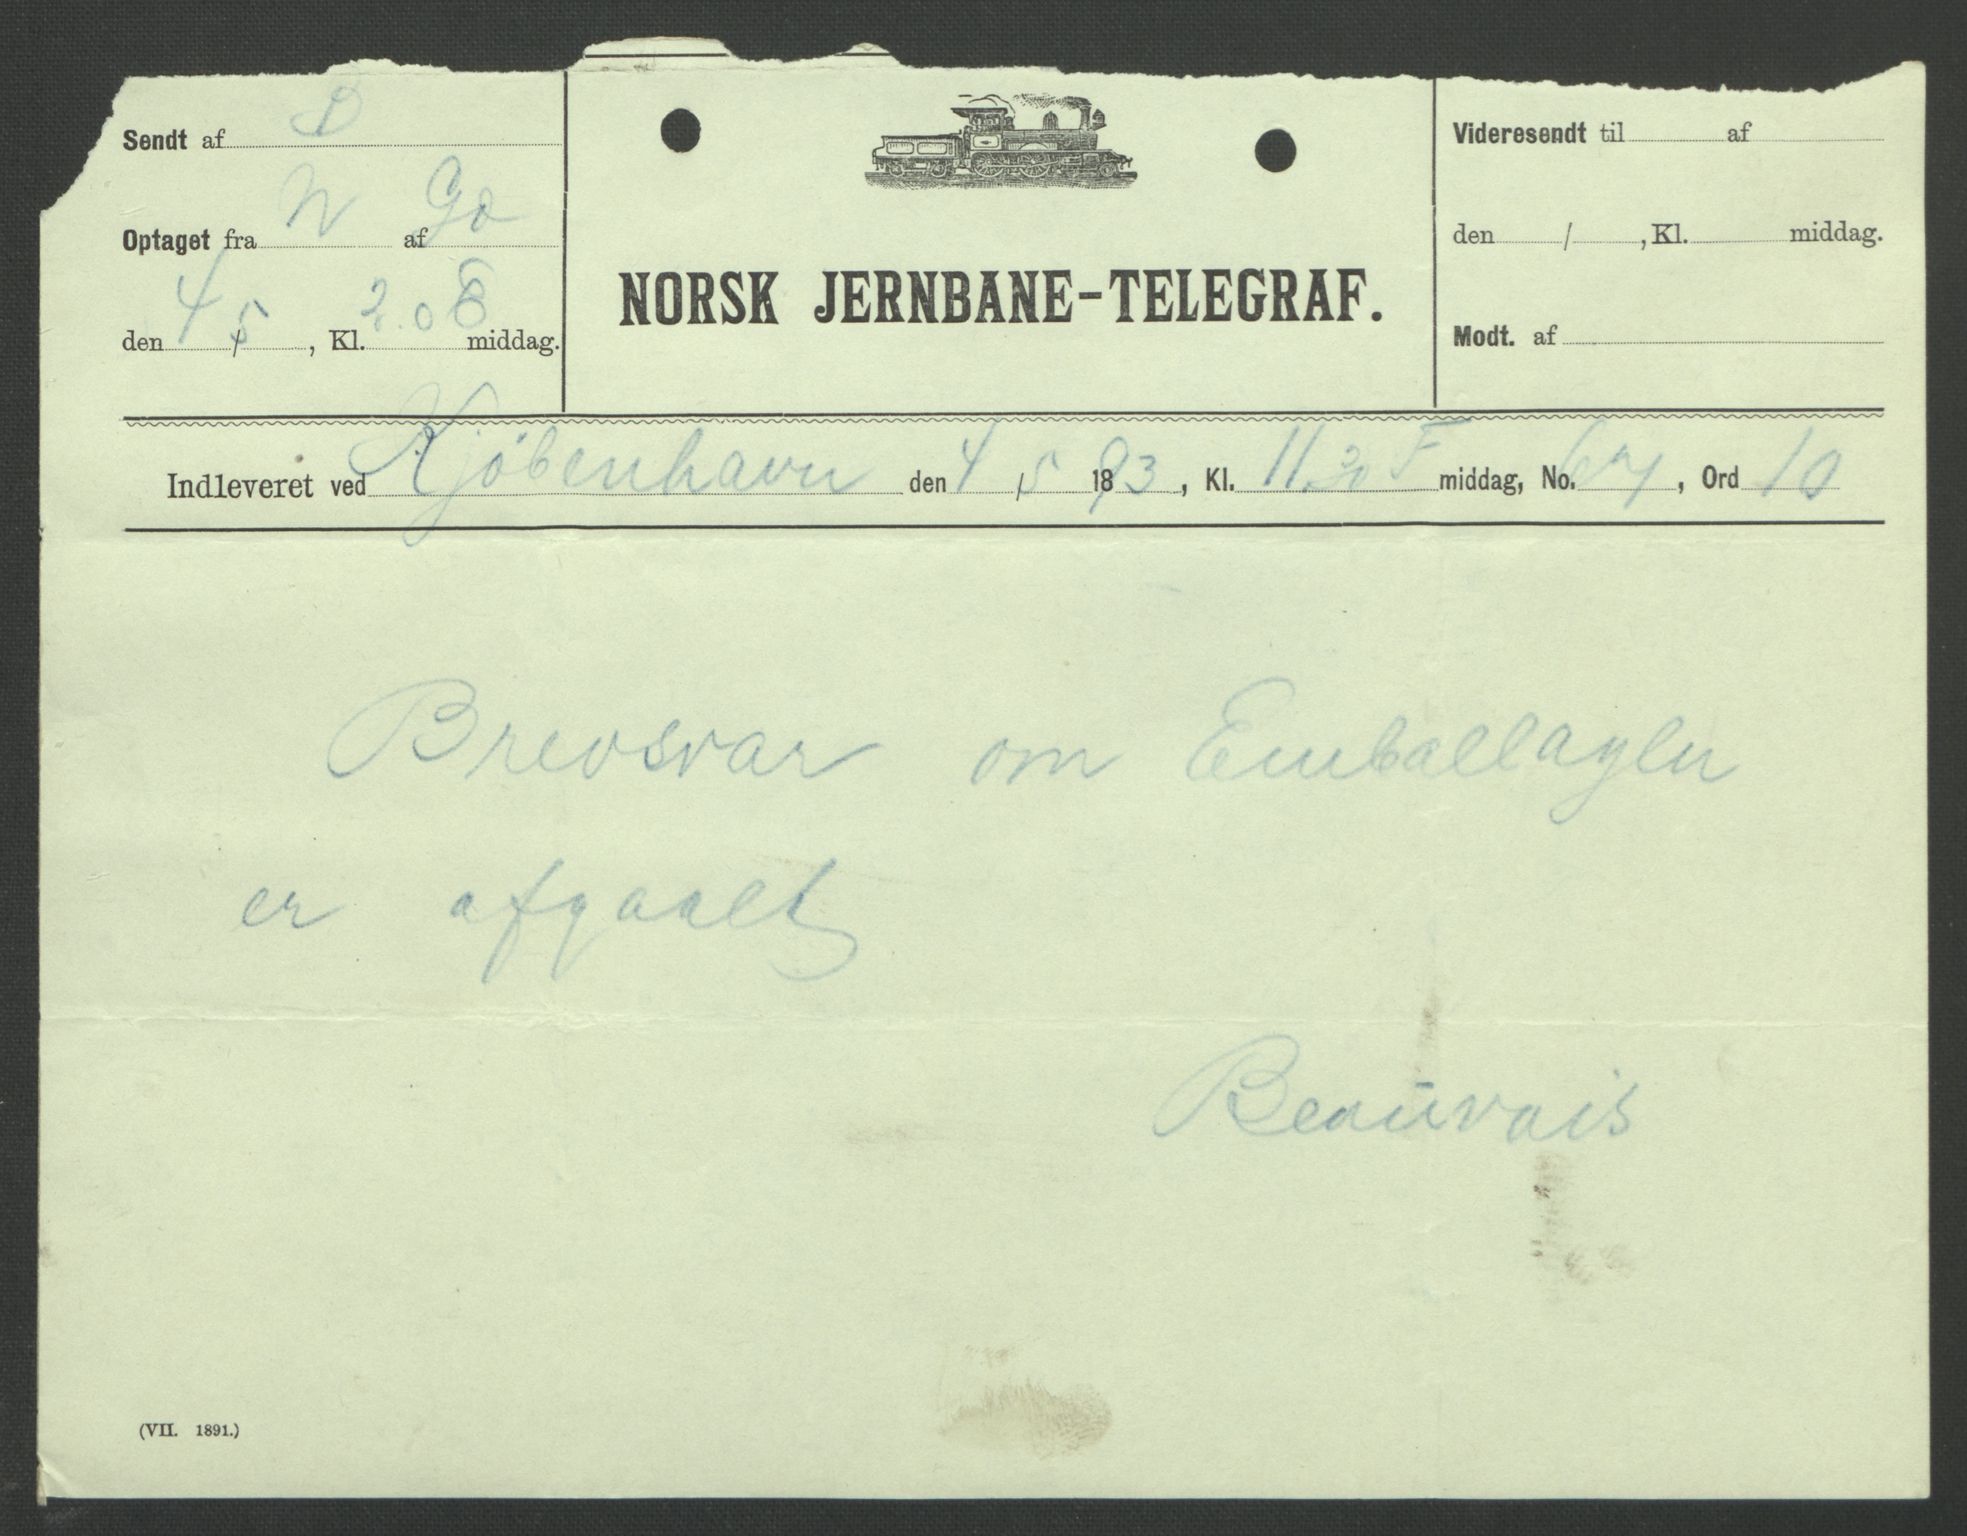 Sendt af B
Optaget fra N af Go
den 4/5, Kl. 2.08 middag.
NORSK JERNBANE-TELEGRAF.
Videresendt til af
den / , Kl. middag.
Modt. af
Indleveret ved Kjöbenhavn den 4/5 1893, Kl. 11.30 F middag, No. , Ord 10
Brevsvar om Emballagen
er afgaaet
Beauvais
(VII. 1891.)